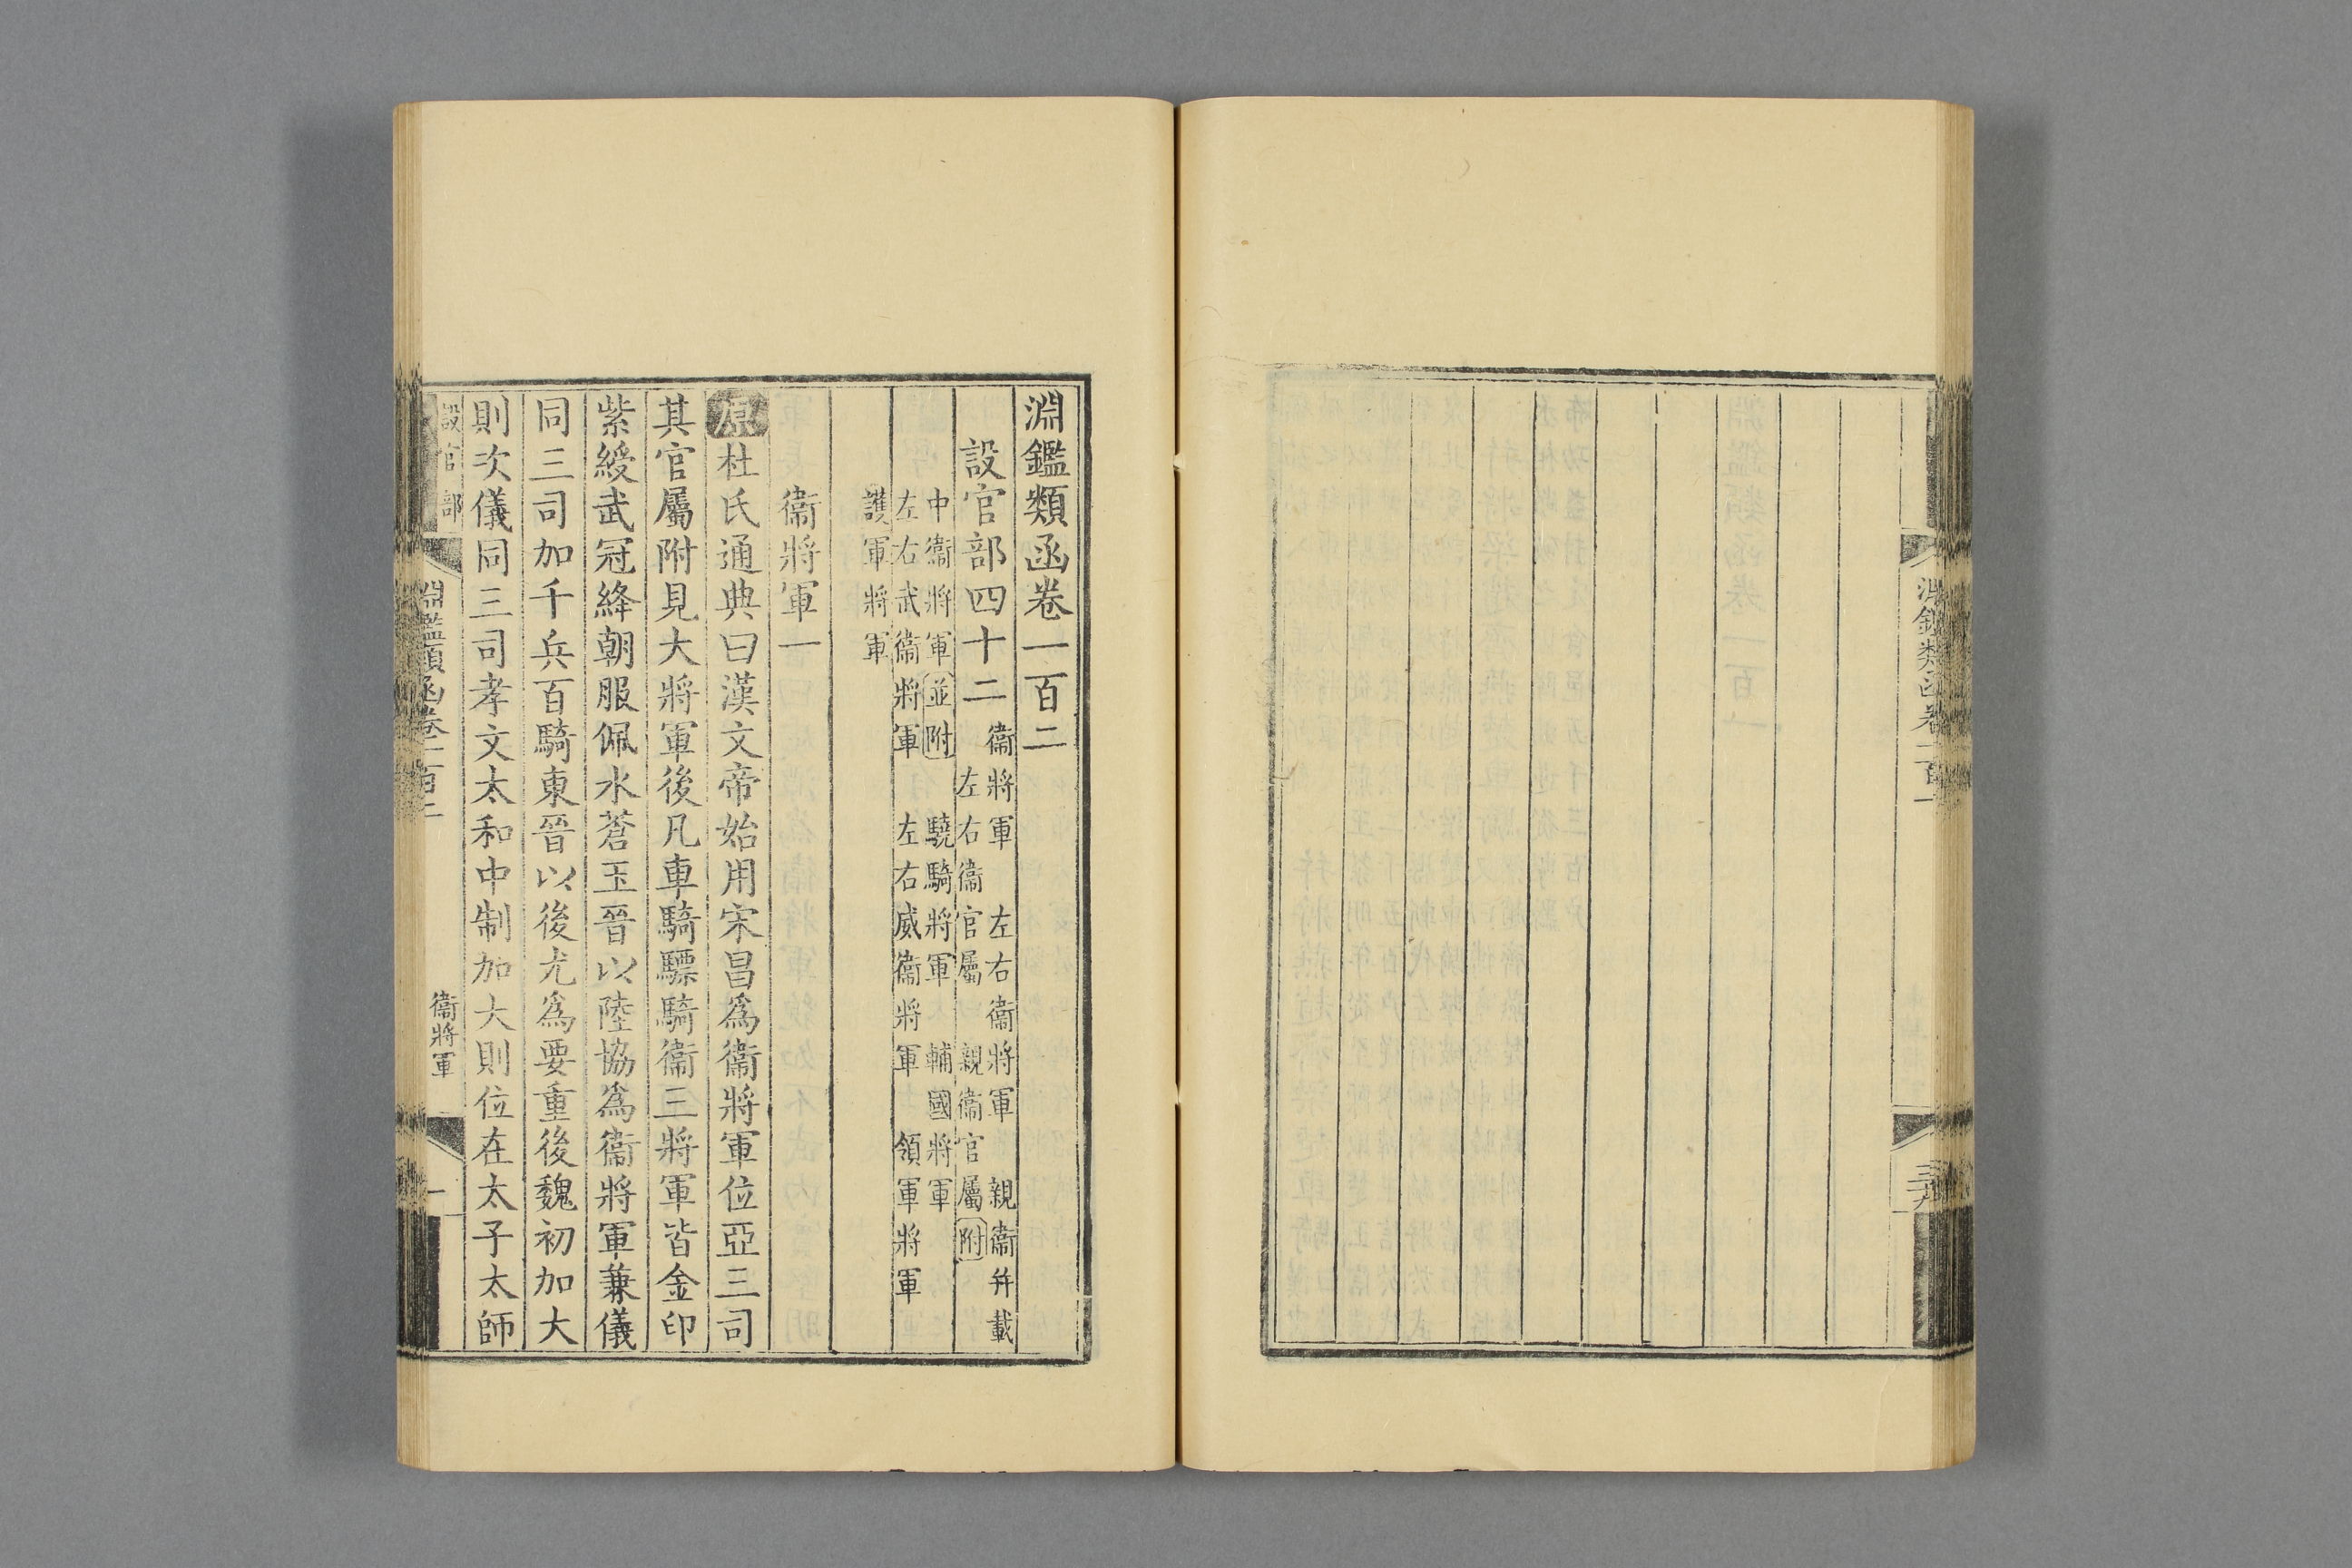 淵鑑類函卷一百
淵鑑類函卷一百二
設官部四十二
衞將軍　左右衞將軍　親衞并載
左右衞官屬　親衞官屬附
中衞將軍並附　驍騎將軍　輔國將軍
左右武衞將軍　左右威衞將軍　領軍將軍
護軍將軍
衞將軍一
原杜氏通典曰漢文帝始用宋昌爲衞將軍位亞三司
其官屬附見大將軍後凡車騎驃騎衞三將軍皆金印
紫綬武冠絳朝服佩水蒼玉晉以陸協爲衞將軍兼儀
同三司加千兵百騎東晉以後尤爲要重後魏初加大
則次儀同三司孝文太和中制加大則位在太子太師
設官部
淵鑑類函卷一百二
衞將軍
一